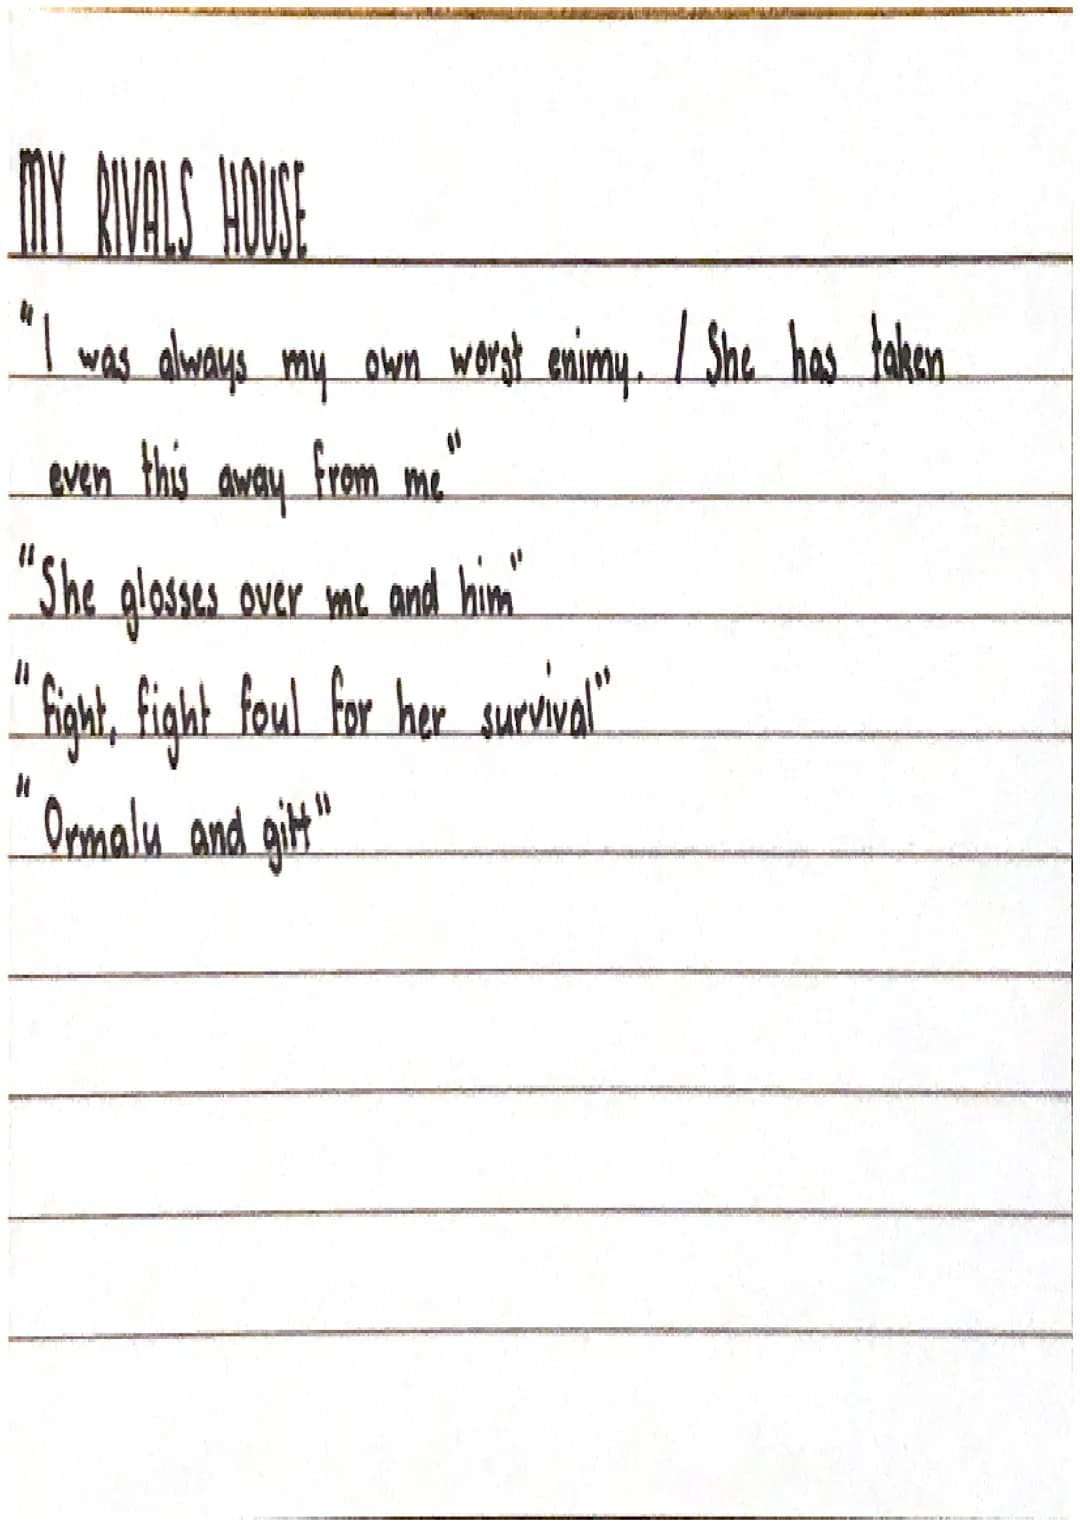 MY RIVALS HOUSE
"I was always my own worst enimy. / She has taken
even this away from me"
"She glosses over me and him"
"fight, fight foul for her survival"
"Ormalu and gitt"